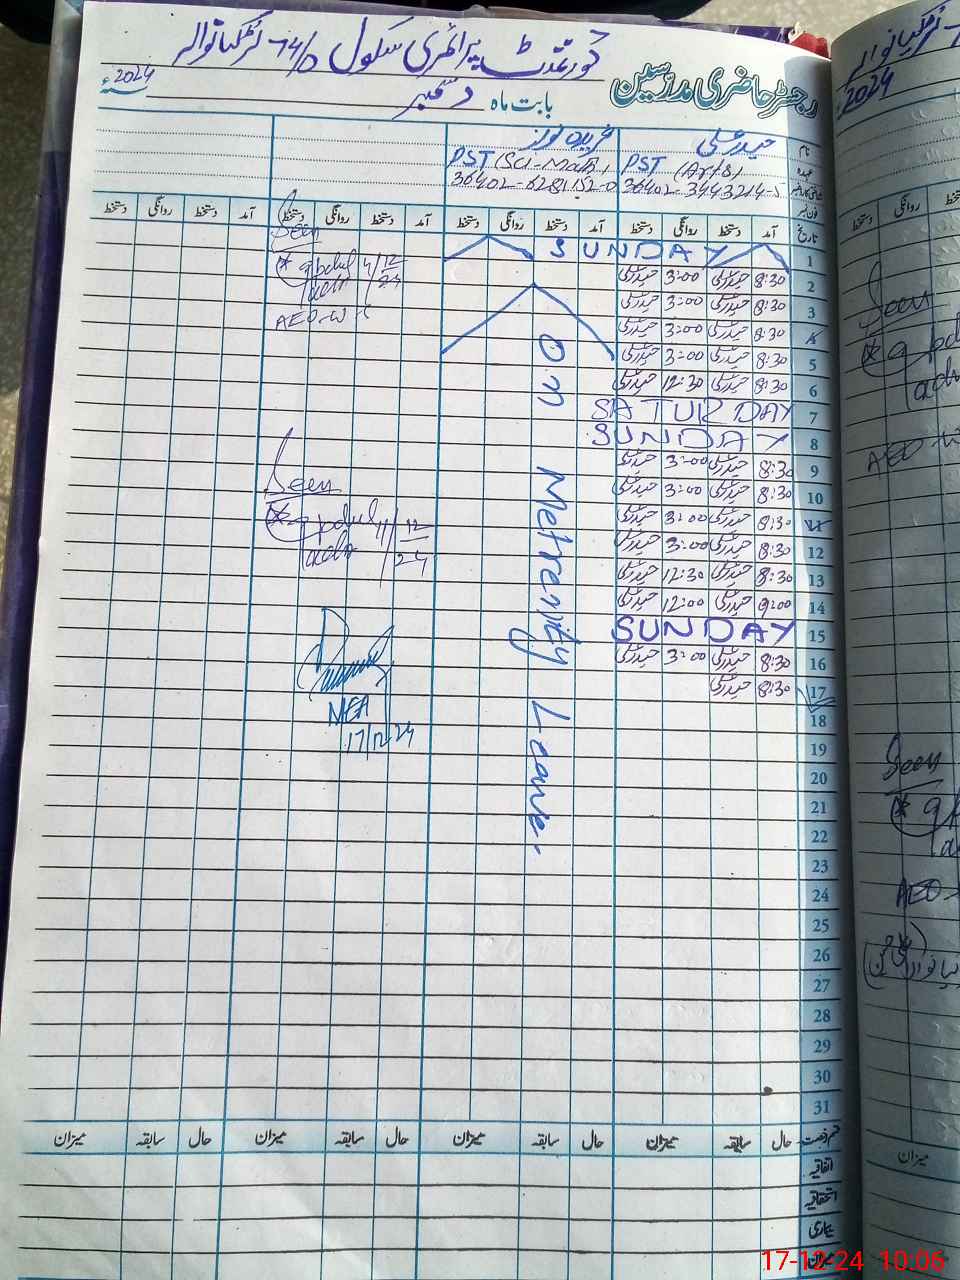 گورنمنٹ پرائمری سکول 74/D
رجسٹر حاضری مدرسین
بابت ماہ دسمبر
2024ء
نام حیدر علی
عہدہ PST (Arts) PST (Sci-Math)
36402-6281152-0
فون نمبر
تاریخ آمد دستخط روانگی دستخط آمد دستخط روانگی دستخط آمد دستخط روانگی دستخط آمد دستخط روانگی دستخط
1 SUNDAY
2 8:30 حیدر علی 3:00 حیدر علی
3 8:30 حیدر علی 3:00 حیدر علی
4 8:30 حیدر علی 3:00 حیدر علی
5 8:30 حیدر علی 3:00 حیدر علی
6 8:30 حیدر علی 12:30 حیدر علی
7 SATURDAY
8 SUNDAY
9 8:30 حیدر علی 3:00 حیدر علی
10 8:30 حیدر علی 3:00 حیدر علی
11 8:30 حیدر علی 3:00 حیدر علی
12 8:30 حیدر علی 3:00 حیدر علی
13 8:30 حیدر علی 12:30 حیدر علی
14 9:00 حیدر علی 12:00 حیدر علی
15 SUNDAY
16 8:30 حیدر علی 3:00 حیدر علی
17 8:30 حیدر علی
18
19
20
21
22
23
24
25
26
27
28
29
30
31
On Metrenity Leave.
Seen
4/12
24
AEO-W
Seen
11/12
24
MEA
17/12/24
قسم رخصت حال سابقہ میزان حال سابقہ میزان حال سابقہ میزان حال سابقہ میزان
اتفاقیہ
استحقاقیہ
بیماری
میزان
2024
Seen
AEO-W
Seen
AEO-
میزان
17-12-24 10:06